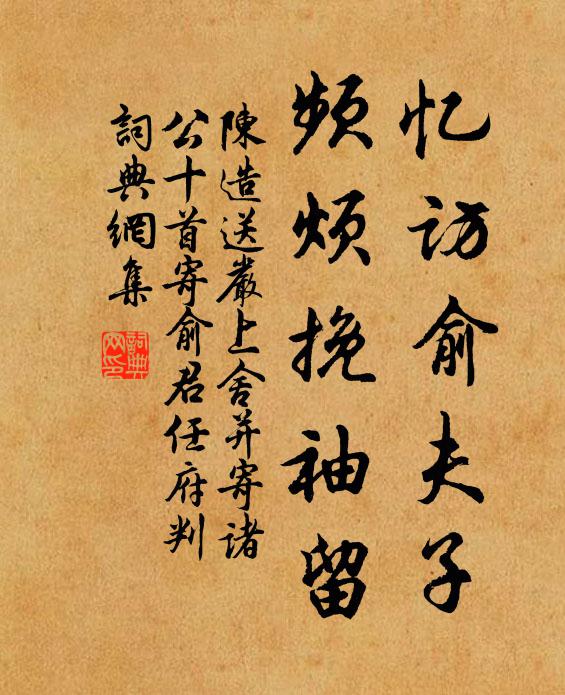 忆访俞夫子
频烦挽袖留
陳造送嚴上舍并寄諸
公十首寄俞君任府判
詞典網集
詞典
网印